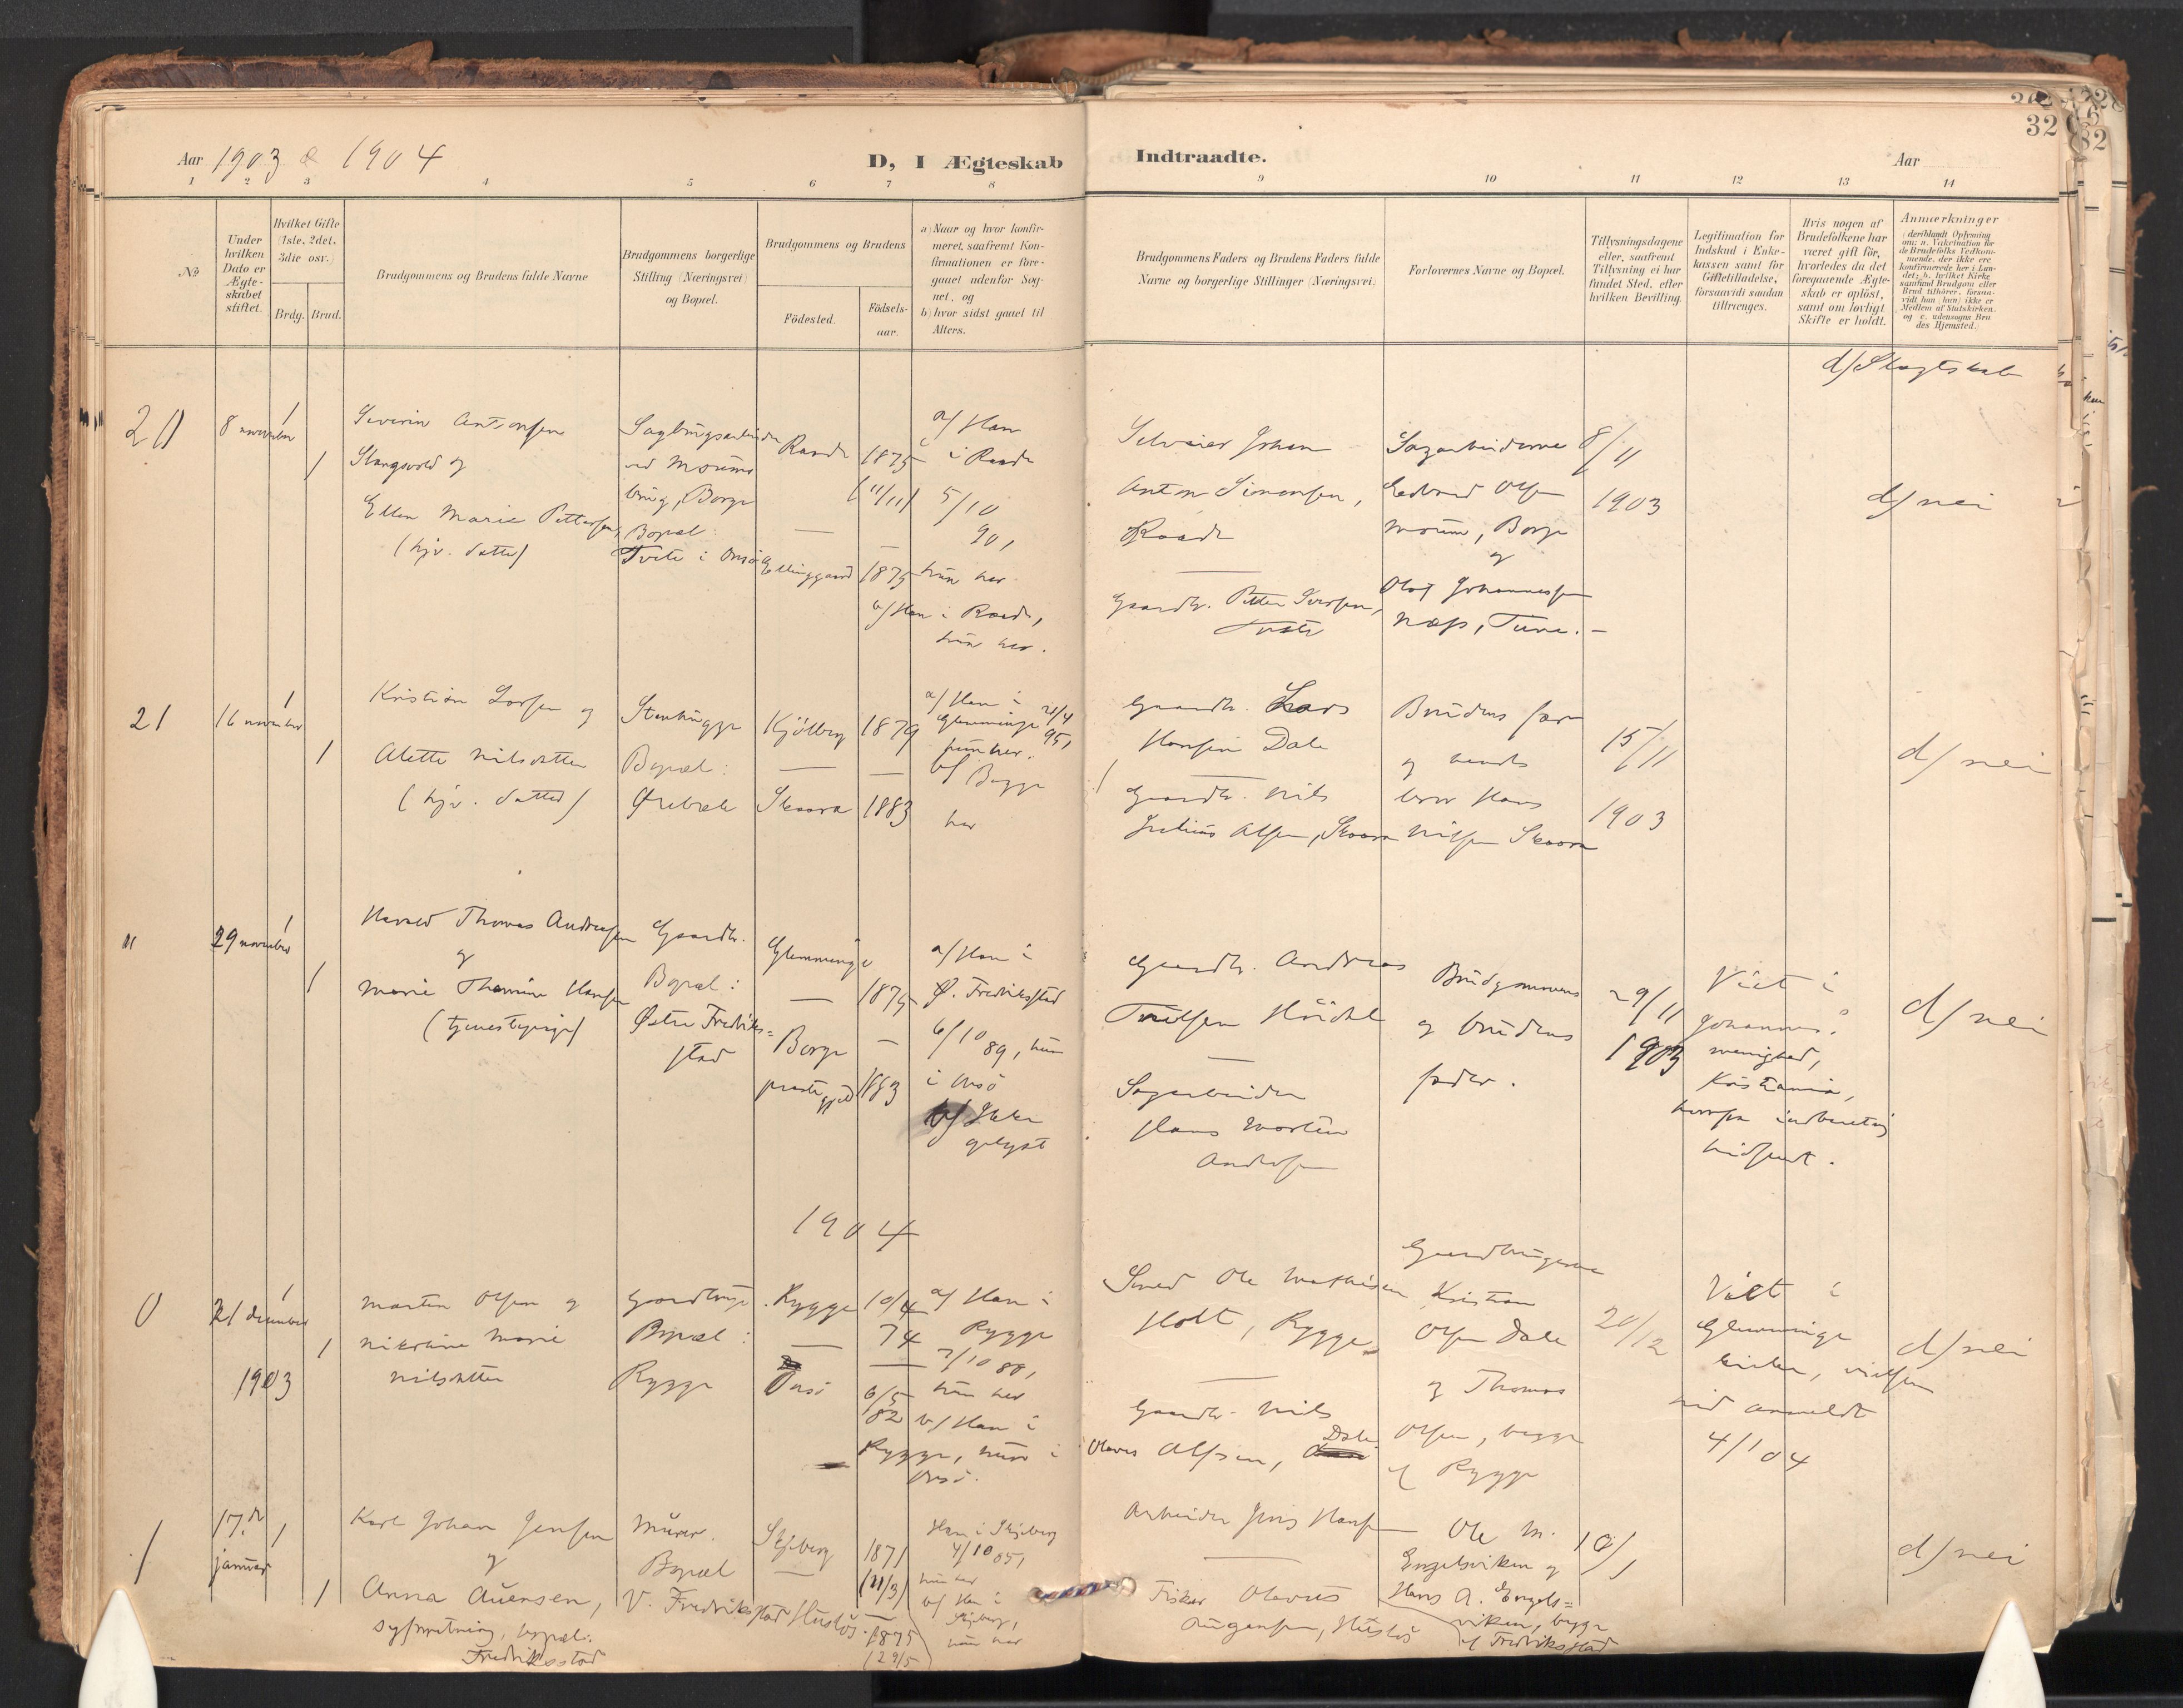 32
Aar 1903 & 1904
D, I Ægteskab
Indtraadte.
Aar
1 2 3 4 5 6 7 8 9 10 11 12 13 14
№
Under hvilken Dato er Ægte-skabet stiftet.
Hvilket Gifte (1ste, 2det, 3die osv.)
Brdg. Brud.
Brudgommens og Brudens fulde Navne
Brudgommens borgerlige Stilling (Næringsvei) og Bopæl.
Brudgommens og Brudens
Födested.
Födsels-aar.
a) Naar og hvor konfir-
meret, saafremt Kon-
firmationen er fore-
gaaet udenfor Sog-
net, og
b) hvor sidst gaaet til
Alters.
Brudgommens Faders og Brudens Faders fulde
Navne og borgerlige Stillinger (Næringsvei)
Forlovernes Navne og Bopæl.
Tillysningsdagene
eller, saafremt
Tillysning ei har
fundet Sted, efter
hvilken Bevilling.
Legitimation for
Indskud i Enke-
kassen samt for
Giftetilladelse,
forsaavidt saadan
tiltrænges.
Hvis nogen af
Brudefolkene har
været gift för,
hvorledes da det
foregaaende Ægte-
skab er oplöst,
samt om lovligt
Skifte er holdt.
Anmærkninger
(deriblandt Oplysning
om: a. Vakcination for
de Brudefolks Vedkom-
mende, der ikke ere
konfirmerede her i Lan-
det; b. hvilket Kirke
samfund Brudgom eller
Brud tilhörer, forsaa-
vidt han (hun) ikke er
Medlem af Statskirken,
og c. udensogns Bru
des Hjemsted.)
d/ Slægtskab
8 november
1
1
Severin Antonsen
Slangsvold og
Ellen Marie Pettersen,
(hjv. datter)
Sagbrugsarbeider
ved Moum
brug, Borge
Bopæl:
Tvete i Onsö
Raade
Ellinggaard
1875
(11/11)
1875
a/ Han
i Raade
5/10
90,
hun her
b/ Han i Raade,
hun her.
Selveier Johan
Anton Simonsen,
Raade
Gaardbr. Petter Iversen,
Tvete
Sagarbeiderne
Edvard Olsen
Moum, Borge
og
Olaf Johannessen
Næss, Tune.
8/11
1903
d/ nei
21
16 november
1
1
Kristian Larsen og
Alette Nilsdatter
(hjv. datter)
Stenhugger
Bopæl:
Ørebæk
Kjölberg
Skaara
1879
1883
a/ Han i
Glemminge 21/4
95,
hun her.
b/ Begge
her
Gaardbr. Lars
Hansen Dale
Gaardbr. Nils
Julius Olsen, Skaara
Brudens far
og
bror Hans
Nilsen Skaara
15/11
1903
d/ nei
"
29 november
1
1
Harald Thomas Andreasen
og
Marie Thomine Hansen
(tjenestepige)
Gaardbr.
Bopæl:
Østre Fredriks=
stad
Glemminge
Borge
præstegjeld
1875
1883
a/ Han i
Ø. Fredriksstad
6/10 89, hun
i Onsö
b/ Ikke
oplyst
Gaardbr. Andreas
Sagarbeider
Hans Martin
Andersen
Brudgommens
og brudens
fader.
29/11
1903
Viet i
Johannes
menighed,
Kristiania,
hvorfra indberetn.
indsendt.
d/ nei
1904
0
21 december
1903
1
1
Martin Olsen og
Nikoline Marie
Nilsdatter
Gaardbruger
Bopæl:
Rygge
Rygge
Onsö
10/4
74
6/5
82
a/ Han i
Rygge
7/10 88,
hun her
b/ Han i
Rygge, hun i
Onsö.
Smed Ole Mathisen
Holt, Rygge
Gaardbr. Nils
Olaves Olsen, Dale
Gaardbrugerne
Kristian
Olsen Dale
og Thomas
Olsen, begge
af Rygge
20/12
Viet i
Glemminge
kirke, vielsen
ind anmeldt
4/1 04
d/ nei
1
17. de
januar
1
1
Karl Johan Jensen
og
Anna Augensen,
syforretning, bopæl:
Fredriksstad
Murer.
Bopæl
V. Fredriksstad
Skjeberg
Husløs
1871
(11/3)
1875
(29/5
Han i Skjeberg
4/10 85,
hun her
b/ Han i
Skjeberg,
hun her
Arbeider Jens Hansen
Fisker Olavus
Augensen, Husløs
Ole M.
Engelsviken og
Hans A. Engels=
viken, begge
af Fredriksstad
10/1
d/ nei